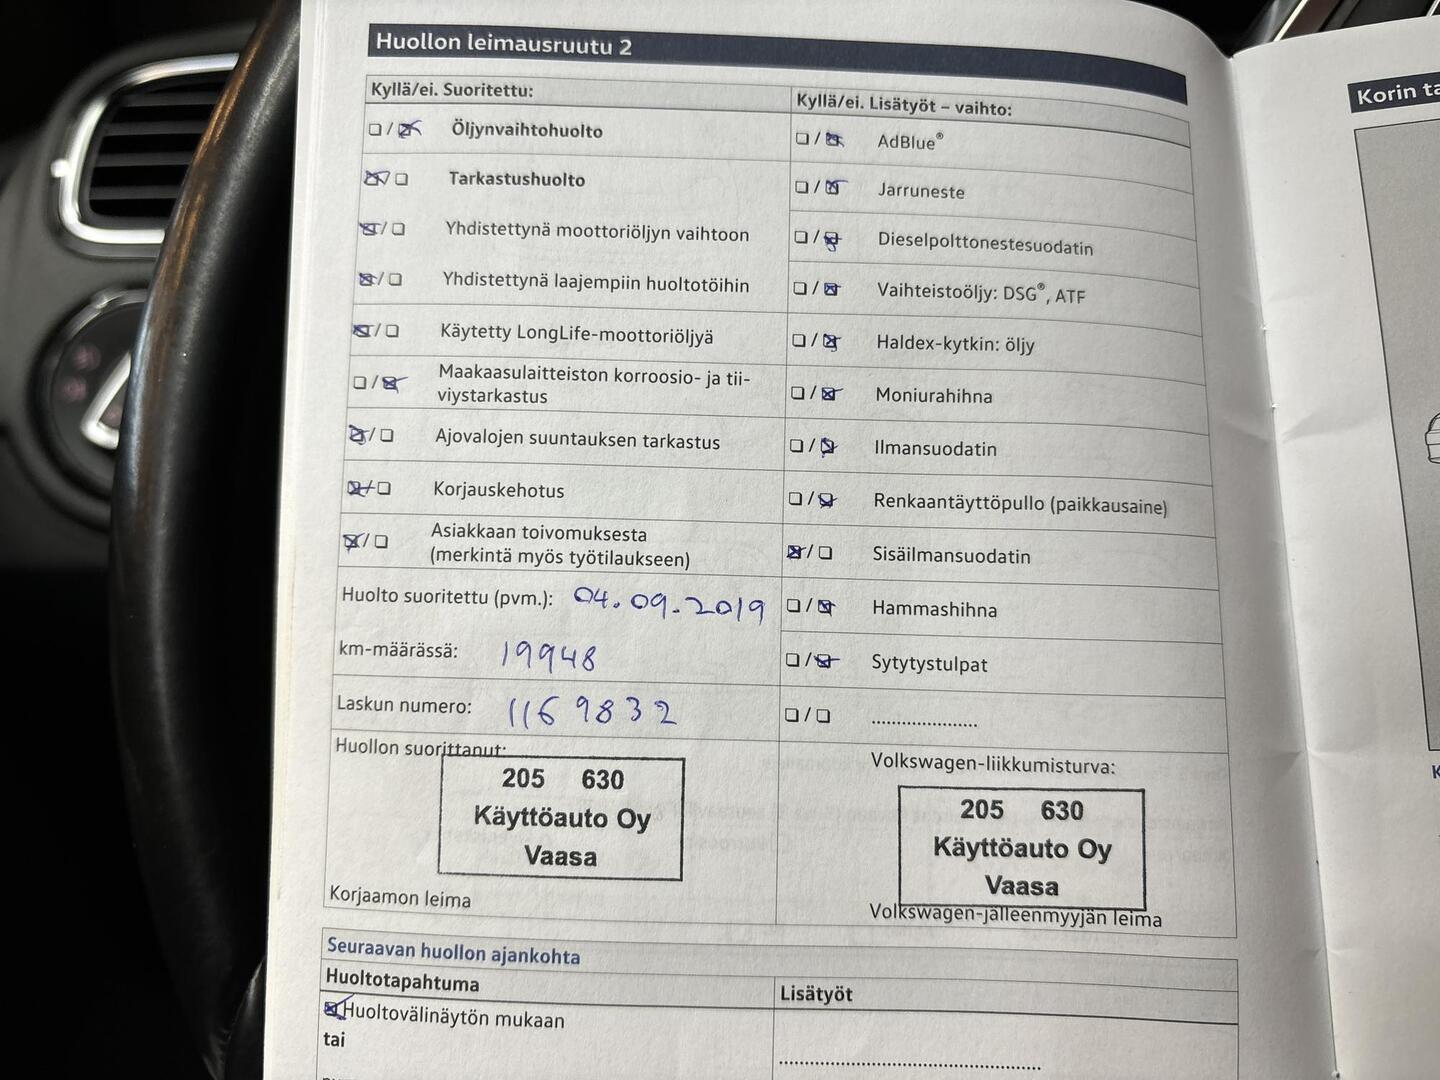 Huollon leimausruutu 2
Kyllä/ei. Suoritettu:
☐/☒ Öljynvaihtohuolto
☒/☐ Tarkastushuolto
☒/☐ Yhdistettynä moottoriöljyn vaihtoon
☒/☐ Yhdistettynä laajempiin huoltotöihin
☒/☐ Käytetty LongLife-moottoriöljyä
☐/☒ Maakaasulaitteiston korroosio- ja tii-
viystarkastus
☒/☐ Ajovalojen suuntauksen tarkastus
☒/☐ Korjauskehotus
☒/☐ Asiakkaan toivomuksesta
(merkintä myös työtilaukseen)
Huolto suoritettu (pvm.): 04.09.2019
km-määrässä: 19948
Laskun numero: 1169832
Huollon suorittanut:
205 630
Käyttöauto Oy
Vaasa
Korjaamon leima
Kyllä/ei. Lisätyöt – vaihto:
☐/☒ AdBlue®
☐/☒ Jarruneste
☐/☒ Dieselpolttonestesuodatin
☐/☒ Vaihteistoöljy: DSG®, ATF
☐/☒ Haldex-kytkin: öljy
☐/☒ Moniurahihna
☐/☒ Ilmansuodatin
☐/☒ Renkaantäyttöpullo (paikkausaine)
☒/☐ Sisäilmansuodatin
☐/☒ Hammashihna
☐/☒ Sytytystulpat
☐/☐ .....................
Volkswagen-liikkumisturva:
205 630
Käyttöauto Oy
Vaasa
Volkswagen-jälleenmyyjän leima
Seuraavan huollon ajankohta
Huoltotapahtuma
☒ Huoltovälinäytön mukaan
tai
Lisätyöt
....................................................
Korin ta